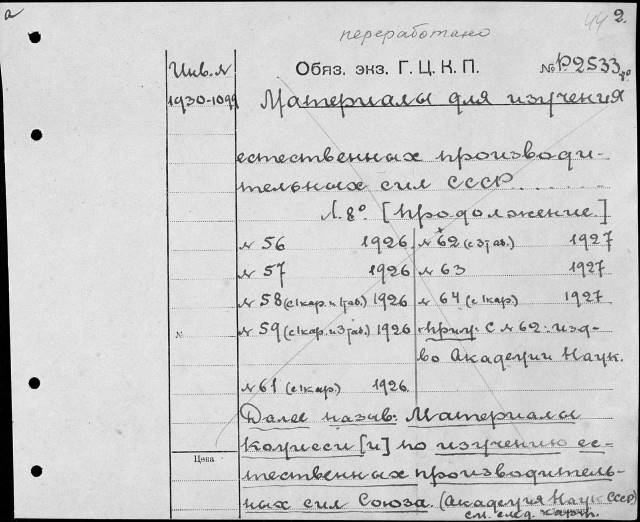 а
44 2.
переработано
Инв. №
1930-1099
Обяз. экз. Г. Ц. К. П.
№ Р.2533
Материалы для изучения
естественных производи-
тельных сил СССР.
Л. 8°. [Продолжение.]
№ 56 1926
№ 57 1926
№ 58 (с 1 кар. и 1 таб.) 1926
№ 59 (с 1 кар. и 3 таб.) 1926
№ 61 (с 1 кар.) 1926.
№ 62 (с 3 таб.) 1927
№ 63 1927
№ 64 (с 1 кар.) 1927
Прим: с № 62: изд-
во Академии Наук.
№
Далее назыв: Материалы
Комиссии [и] по изучению ес-
Цена
тественных производитель-
ных сил Союза. (Академия Наук СССР)
см. след. карт.